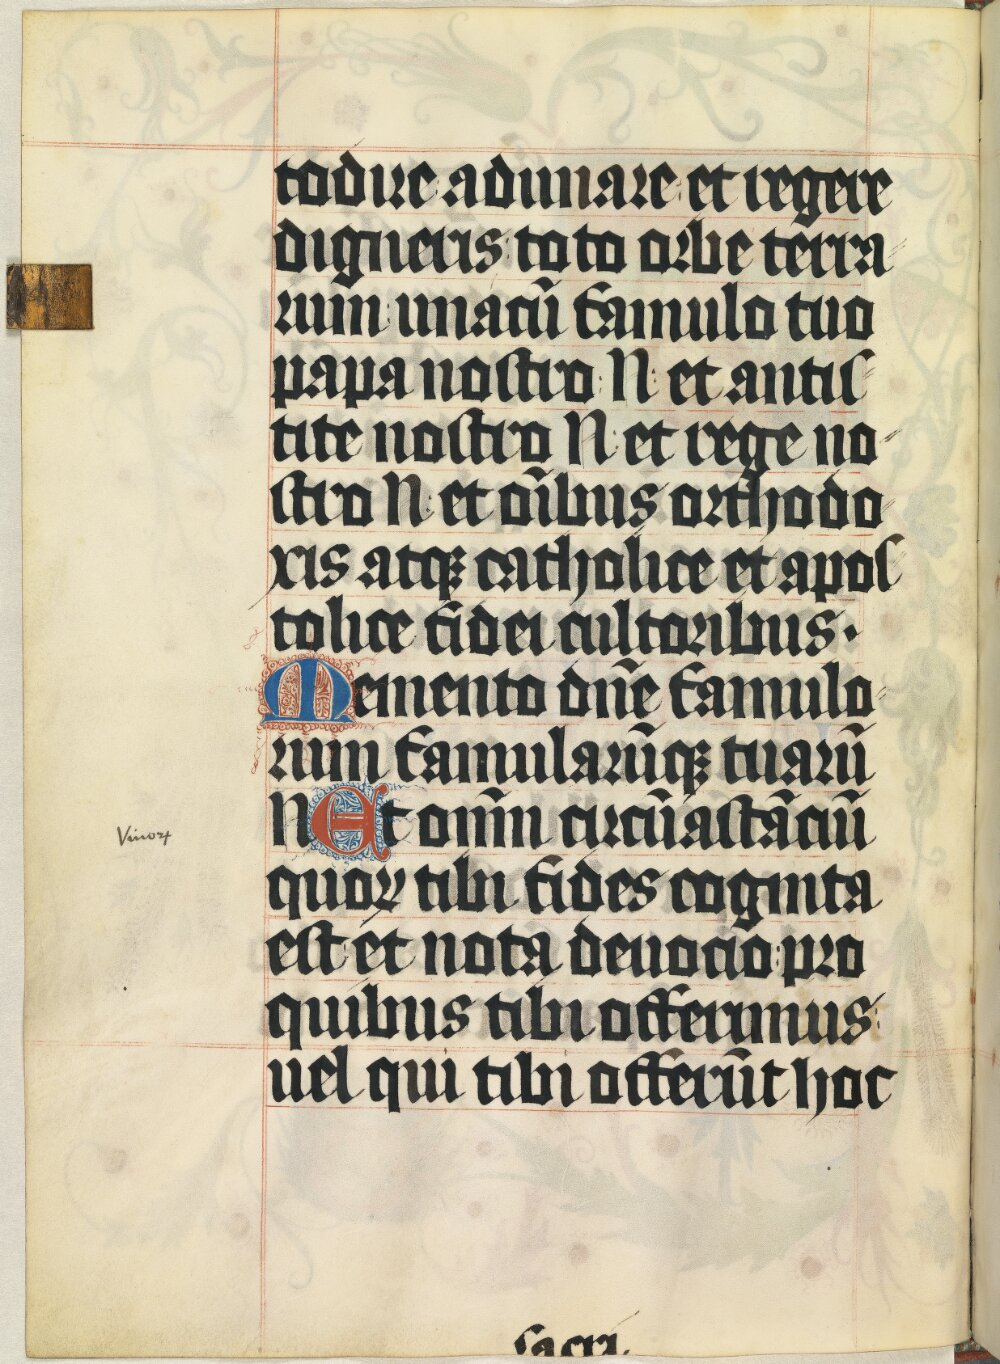 todire adunare et regere
digneris toto orbe terra
rum unacū famulo tuo
papa nostro N et antis
tite nostro N et rege no
stro N et oībus orthodo
xis atqꝫ catholice et apos
tolice fidei cultoribus.
Memento dn̄e famulo
rum famularūqꝫ tuarū
N Et omīn circūastāciū
Vivoꝝ
quoꝝ tibi fides cognita
est et nota deuocio pro
quibus tibi offerimus
uel qui tibi offerūt hoc
sacri.